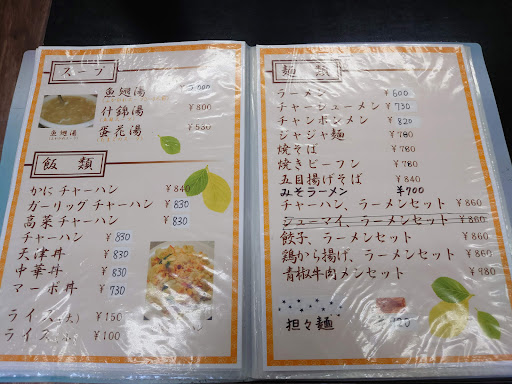 スープ
魚翅湯
什錦湯 ¥800
蛋花湯 ¥530
魚翅湯
飯類
かにチャーハン ¥840
ガーリックチャーハン ¥830
高菜チャーハン ¥830
チャーハン ¥830
天津丼 ¥830
中華丼 ¥830
マーボ丼 ¥730
ライス(大) ¥150
ライス ¥100
麺類
ラーメン ¥600
チャーシューメン ¥730
チャンポンメン ¥820
ジャジャ麺 ¥780
焼そば ¥780
焼きビーフン ¥780
五目揚げそば ¥840
みそラーメン ¥700
チャーハン、ラーメンセット ¥860
シューマイ、ラーメンセット ¥860
餃子、ラーメンセット ¥860
鶏から揚げ、ラーメンセット ¥860
青椒牛肉メンセット ¥980
担々麺